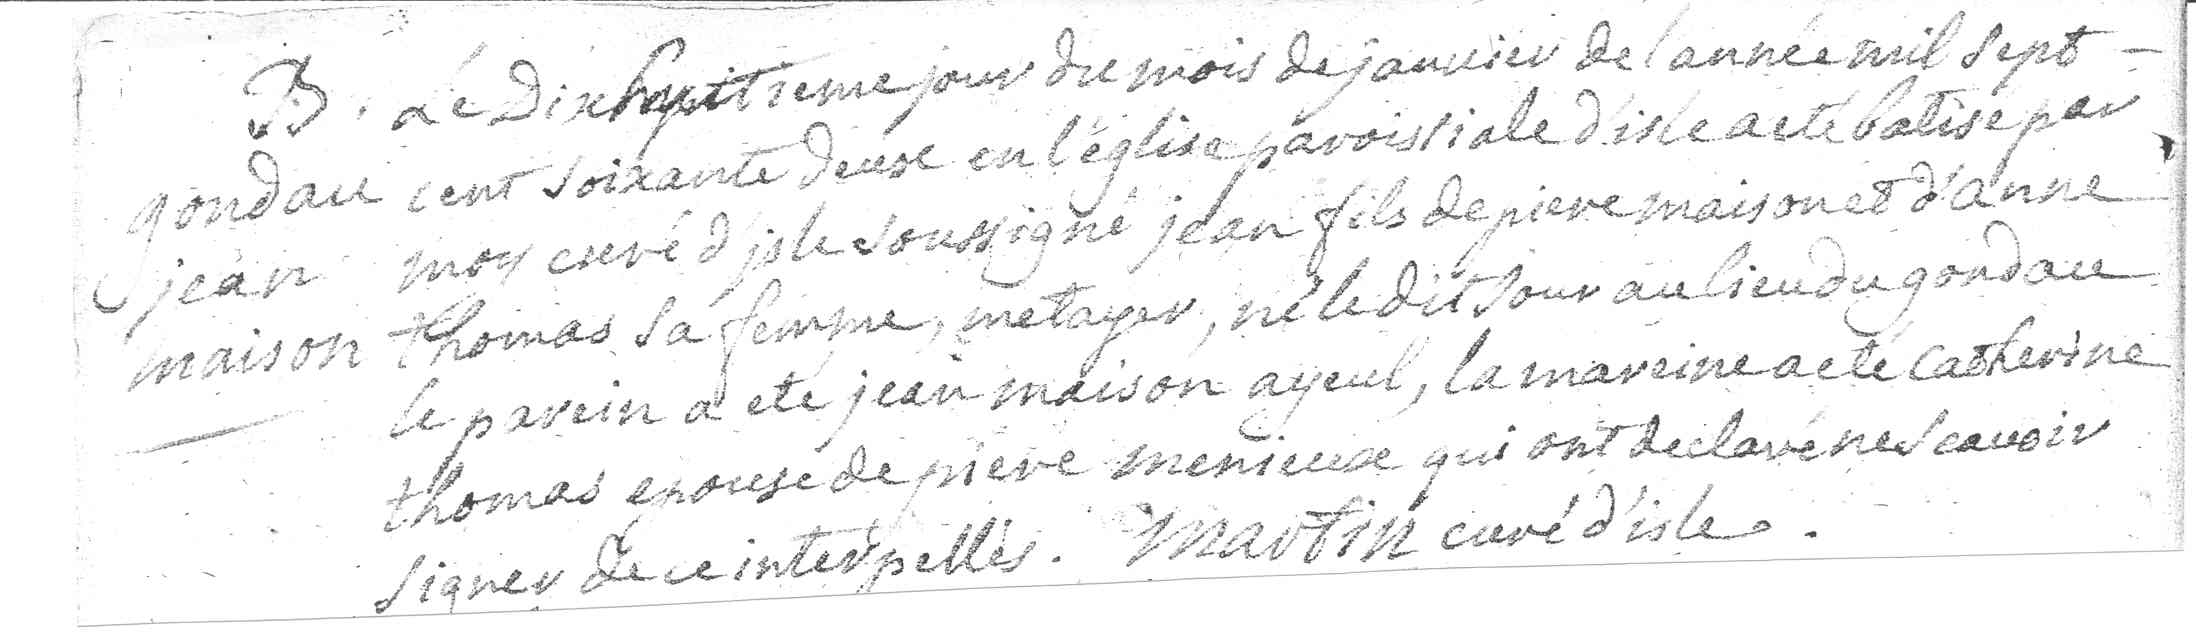 B. Le Dixhuitieme jour du mois de janvier de l'année mil sept -
gondau cent soixante deux en l'église paroissiale d'isle a eté batisé par
jean moy curé d'isle soussigné jean fils de pierre maison et d'anne
maison thomas sa femme, metayer, né le dit jour au lieu du gondau
le parein a eté jean maison ayeul, la mareine a eté Catherine
thomas epouse de piere menieux qui ont declaré ne scavoir
signer de ce interpellés. Martin curé d'isle.